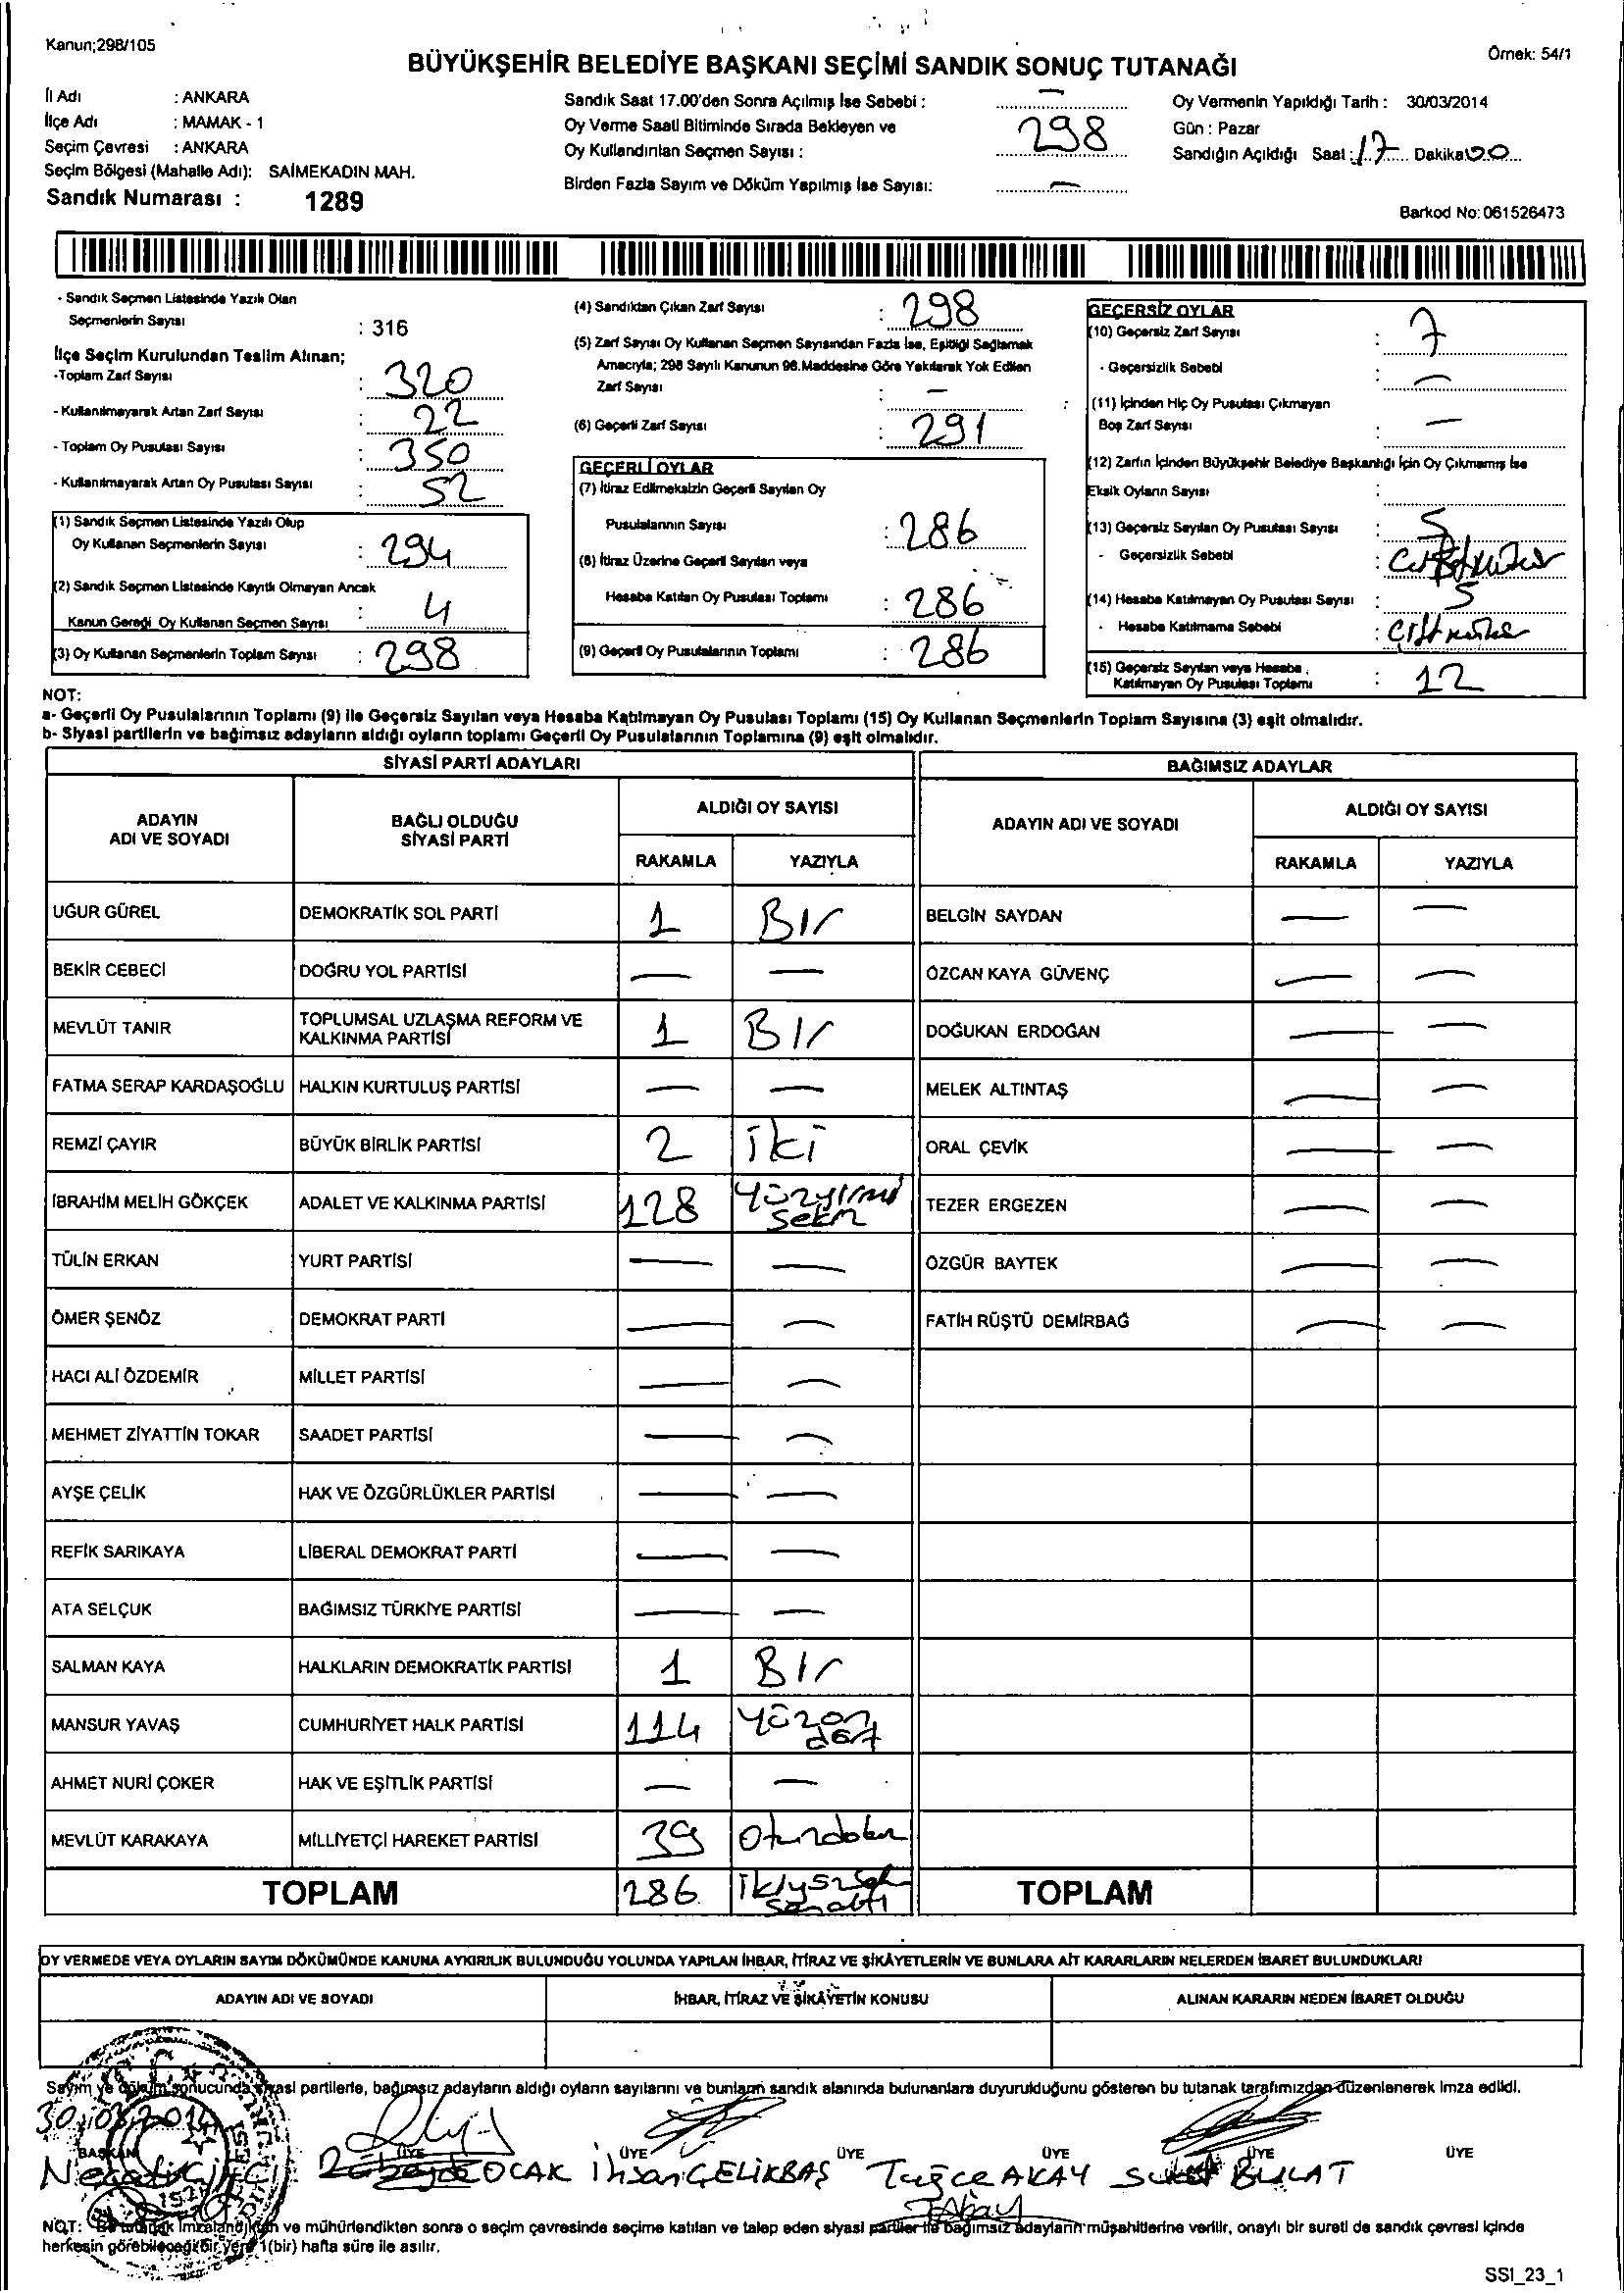 Kanun;298/105
Örnek: 54/1
BÜYÜKŞEHİR BELEDİYE BAŞKANI SEÇİMİ SANDIK SONUÇ TUTANAĞI
İl Adı : ANKARA
İlçe Adı : MAMAK - 1
Seçim Çevresi : ANKARA
Seçim Bölgesi (Mahalle Adı): SAİMEKADIN MAH.
Sandık Numarası : 1289
Sandık Saat 17.00'den Sonra Açılmış İse Sebebi : —
Oy Verme Saati Bitiminde Sırada Bekleyen ve
Oy Kullandırılan Seçmen Sayısı : 298
Birden Fazla Sayım ve Döküm Yapılmış İse Sayısı: —
Oy Vermenin Yapıldığı Tarih : 30/03/2014
Gün : Pazar
Sandığın Açıldığı Saat : 17 Dakika 00
Barkod No: 061526473
- Sandık Seçmen Listesinde Yazılı Olan
Seçmenlerin Sayısı : 316
İlçe Seçim Kurulundan Teslim Alınan;
-Toplam Zarf Sayısı : 320
- Kullanılmayarak Artan Zarf Sayısı : 22
- Toplam Oy Pusulası Sayısı : 350
- Kullanılmayarak Artan Oy Pusulası Sayısı : 52
(1) Sandık Seçmen Listesinde Yazılı Olup
Oy Kullanan Seçmenlerin Sayısı : 294
(2) Sandık Seçmen Listesinde Kayıtlı Olmayan Ancak
Kanun Gereği Oy Kullanan Seçmen Sayısı : 4
(3) Oy Kullanan Seçmenlerin Toplam Sayısı : 298
(4) Sandıktan Çıkan Zarf Sayısı : 298
(5) Zarf Sayısı Oy Kullanan Seçmen Sayısından Fazla İse, Eşitliği Sağlamak
Amacıyla; 298 Sayılı Kanunun 98.Maddesine Göre Yakılarak Yok Edilen
Zarf Sayısı : —
(6) Geçerli Zarf Sayısı : 291
GEÇERLİ OYLAR
(7) İtiraz Edilmeksizin Geçerli Sayılan Oy
Pusulalarının Sayısı : 286
(8) İtiraz Üzerine Geçerli Sayılan veya
Hesaba Katılan Oy Pusulası Toplamı : 286
(9) Geçerli Oy Pusulalarının Toplamı : 286
GEÇERSİZ OYLAR
(10) Geçersiz Zarf Sayısı : 7
- Geçersizlik Sebebi : —
(11) İçinden Hiç Oy Pusulası Çıkmayan
Boş Zarf Sayısı : —
(12) Zarfın İçinden Büyükşehir Belediye Başkanlığı İçin Oy Çıkmamış İse
Eksik Oyların Sayısı :
(13) Geçersiz Sayılan Oy Pusulası Sayısı : 5
- Geçersizlik Sebebi :
(14) Hesaba Katılmayan Oy Pusulası Sayısı : 5
- Hesaba Katılmama Sebebi :
(15) Geçersiz Sayılan veya Hesaba
Katılmayan Oy Pusulası Toplamı : 12
NOT:
a- Geçerli Oy Pusulalarının Toplamı (9) ile Geçersiz Sayılan veya Hesaba Katılmayan Oy Pusulası Toplamı (15) Oy Kullanan Seçmenlerin Toplam Sayısına (3) eşit olmalıdır.
b- Siyasi partilerin ve bağımsız adayların aldığı oyların toplamı Geçerli Oy Pusulalarının Toplamına (9) eşit olmalıdır.
SİYASİ PARTİ ADAYLARI
ADAYIN ADI VE SOYADI BAĞLI OLDUĞU SİYASİ PARTİ ALDIĞI OY SAYISI
RAKAMLA YAZIYLA
UĞUR GÜREL DEMOKRATİK SOL PARTİ 1 Bir
BEKİR CEBECİ DOĞRU YOL PARTİSİ — —
MEVLÜT TANIR TOPLUMSAL UZLAŞMA REFORM VE KALKINMA PARTİSİ 1 Bir
FATMA SERAP KARDAŞOĞLU HALKIN KURTULUŞ PARTİSİ — —
REMZİ ÇAYIR BÜYÜK BİRLİK PARTİSİ 2 iki
İBRAHİM MELİH GÖKÇEK ADALET VE KALKINMA PARTİSİ 128 Yüzyirmi sekiz
TÜLİN ERKAN YURT PARTİSİ — —
ÖMER ŞENÖZ DEMOKRAT PARTİ — —
HACI ALİ ÖZDEMİR MİLLET PARTİSİ — —
MEHMET ZİYATTİN TOKAR SAADET PARTİSİ — —
AYŞE ÇELİK HAK VE ÖZGÜRLÜKLER PARTİSİ — —
REFİK SARIKAYA LİBERAL DEMOKRAT PARTİ — —
ATA SELÇUK BAĞIMSIZ TÜRKİYE PARTİSİ — —
SALMAN KAYA HALKLARIN DEMOKRATİK PARTİSİ 1 Bir
MANSUR YAVAŞ CUMHURİYET HALK PARTİSİ 114 Yüzon dört
AHMET NURİ ÇOKER HAK VE EŞİTLİK PARTİSİ — —
MEVLÜT KARAKAYA MİLLİYETÇİ HAREKET PARTİSİ 39 Otuzdokuz
TOPLAM 286 ikiyüzsek senaltı
BAĞIMSIZ ADAYLAR
ADAYIN ADI VE SOYADI ALDIĞI OY SAYISI
RAKAMLA YAZIYLA
BELGİN SAYDAN — —
ÖZCAN KAYA GÜVENÇ — —
DOĞUKAN ERDOĞAN — —
MELEK ALTINTAŞ — —
ORAL ÇEVİK — —
TEZER ERGEZEN — —
ÖZGÜR BAYTEK — —
FATİH RÜŞTÜ DEMİRBAĞ — —
TOPLAM
OY VERMEDE VEYA OYLARIN SAYIM DÖKÜMÜNDE KANUNA AYKIRILIK BULUNDUĞU YOLUNDA YAPILAN İHBAR, İTİRAZ VE ŞİKÂYETLERİN VE BUNLARA AİT KARARLARIN NELERDEN İBARET BULUNDUKLARI
ADAYIN ADI VE SOYADI İHBAR, İTİRAZ VE ŞİKÂYETİN KONUSU ALINAN KARARIN NEDEN İBARET OLDUĞU
Sayım ve döküm sonucunda siyasi partilerle, bağımsız adayların aldığı oyların sayılarını ve bunların sandık alanında bulunanlara duyurulduğunu gösteren bu tutanak tarafımızdan düzenlenerek imza edildi.
30.03.2014
BAŞKAN ÜYE ÜYE ÜYE ÜYE ÜYE ÜYE
Necati Zübeyde OCAK İhsan ÇELİKBAŞ Tuğçe AKAY BULAT
NOT: Bu tutanak imzalandıktan ve mühürlendikten sonra o seçim çevresinde seçime katılan ve talep eden siyasi partiler ile bağımsız adayların müşahitlerine verilir, onaylı bir sureti de sandık çevresi içinde
herkesin görebileceği bir yere 1(bir) hafta süre ile asılır.
SSI_23_1